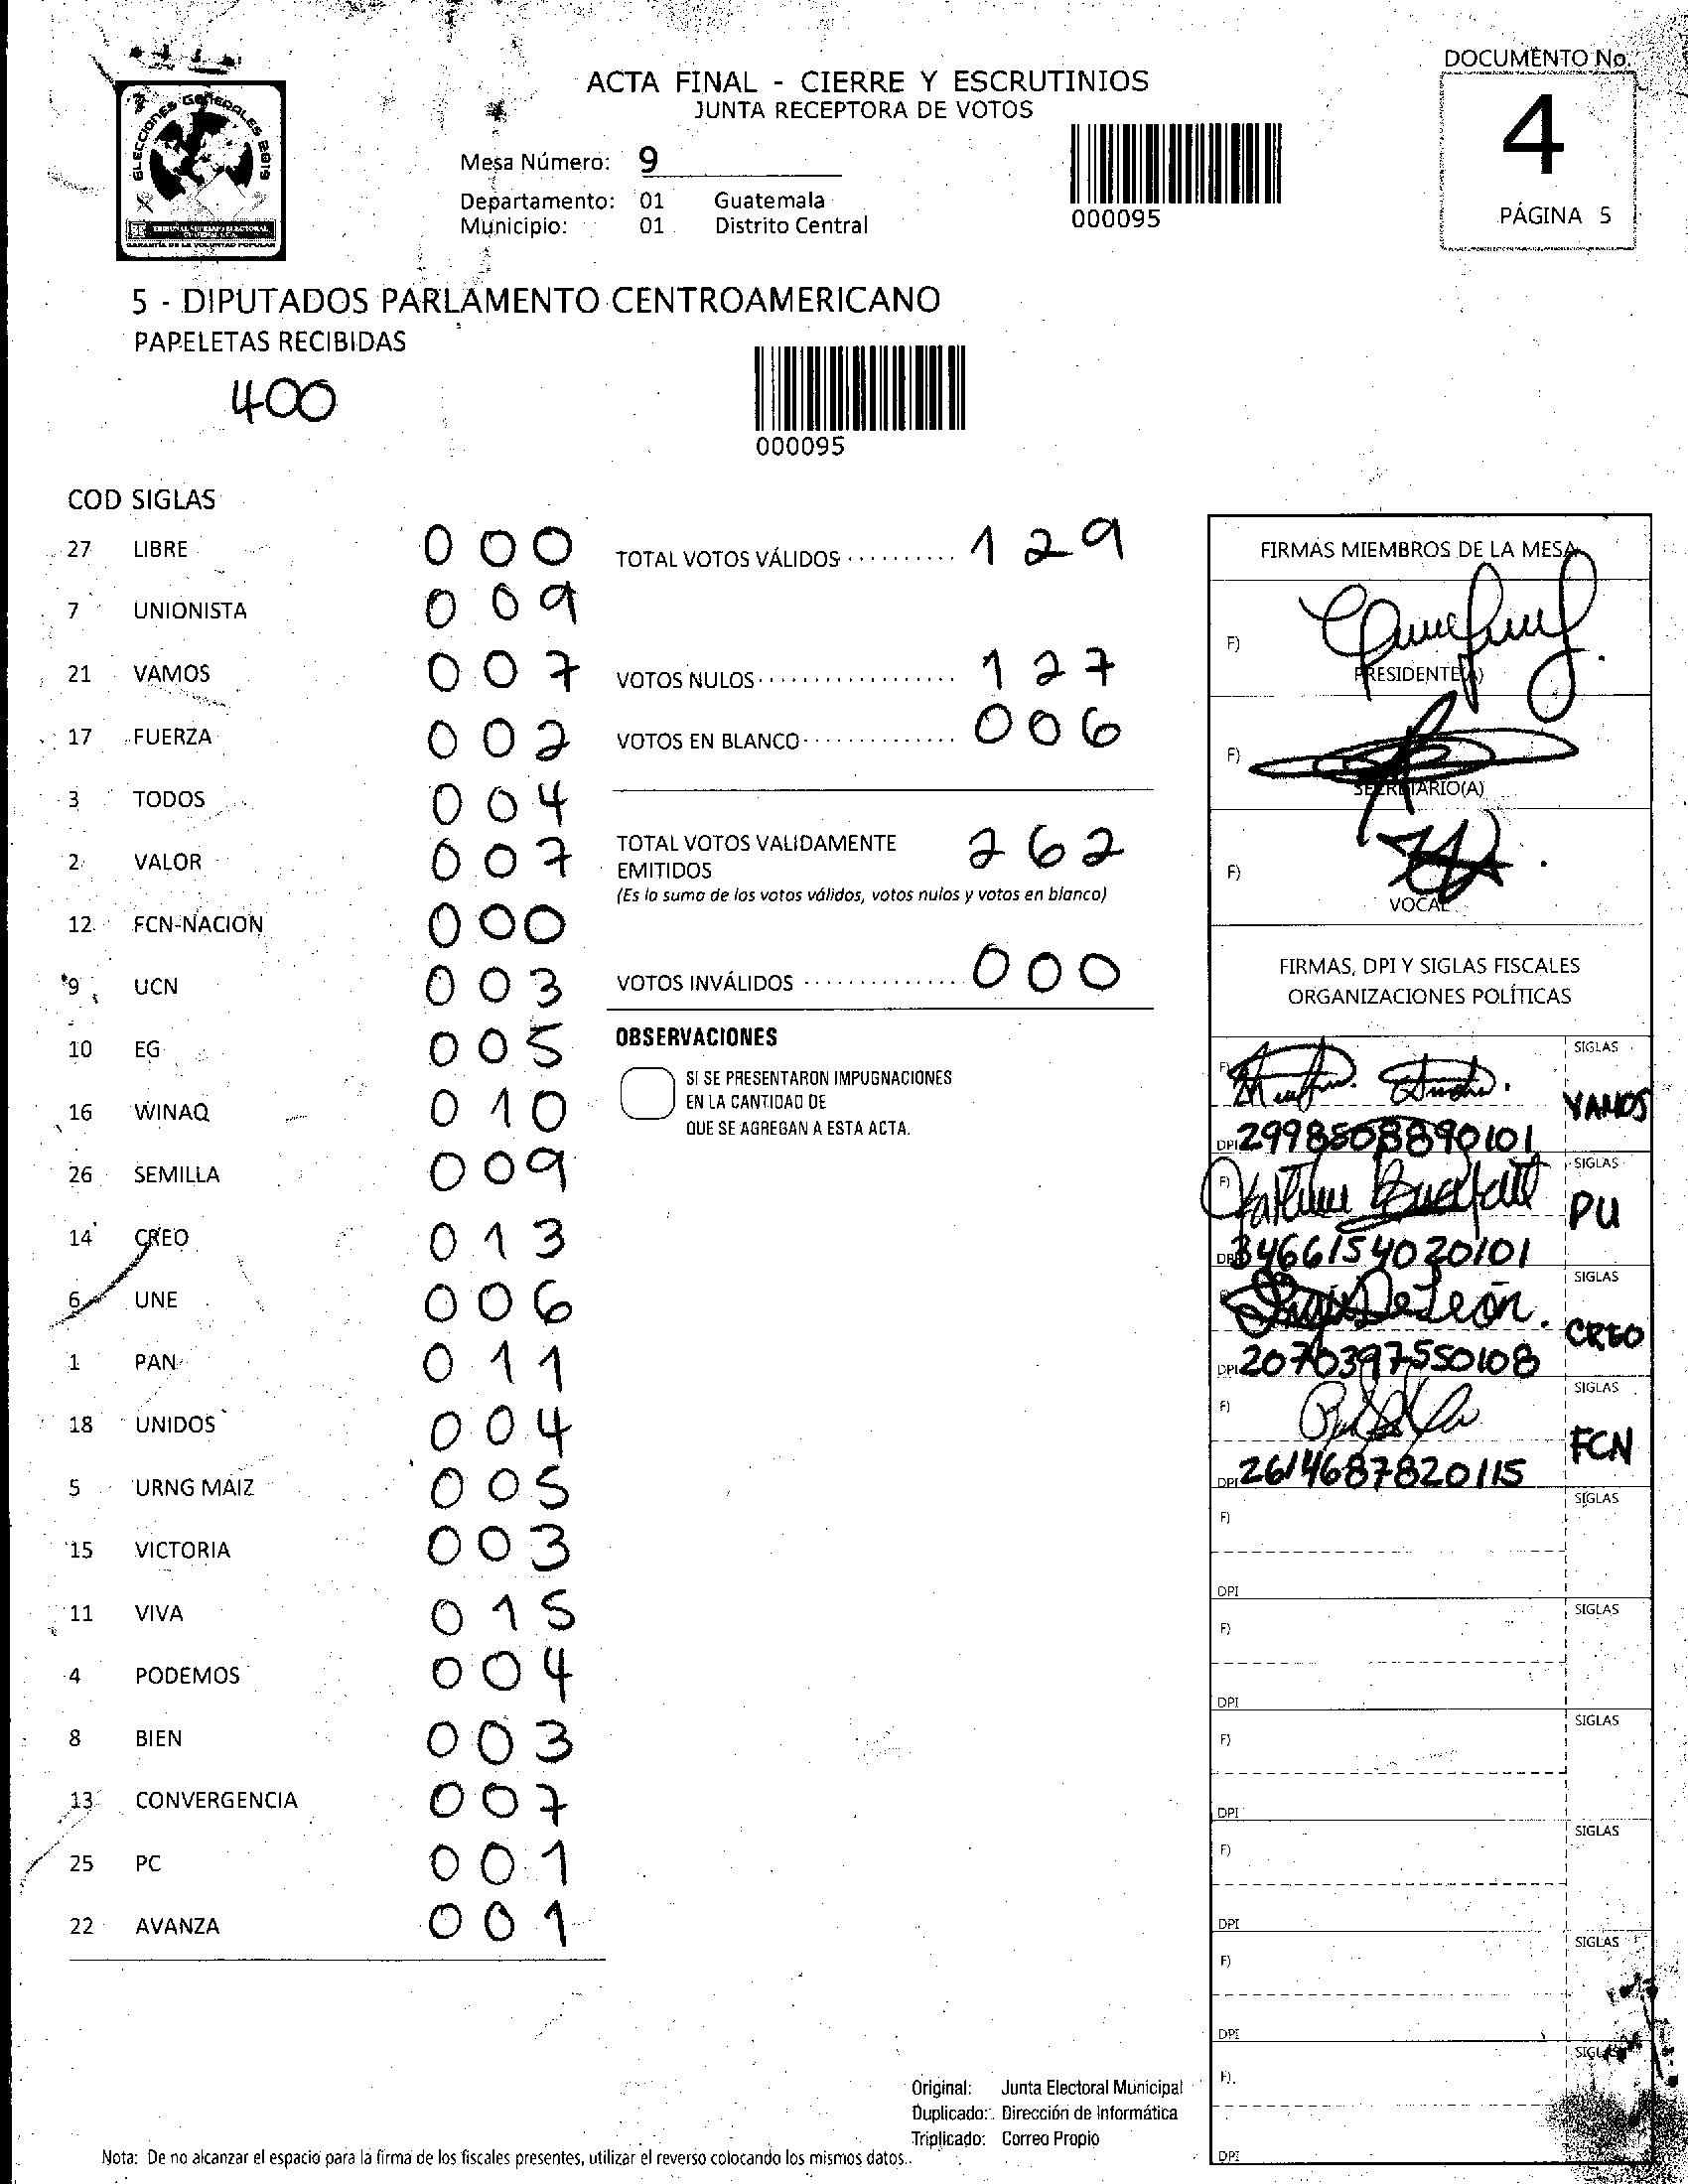 DOCUMENTO No.
4
PÁGINA 5
ELECCIONES GENERALES 2019
TRIBUNAL SUPREMO ELECTORAL
GUATEMALA, C.A.
GARANTÍA DE LA VOLUNTAD POPULAR
ACTA FINAL - CIERRE Y ESCRUTINIOS
JUNTA RECEPTORA DE VOTOS
Mesa Número: 9
Departamento: 01 Guatemala
Municipio: 01 Distrito Central
000095
5 - DIPUTADOS PARLAMENTO CENTROAMERICANO
PAPELETAS RECIBIDAS
400
000095
COD SIGLAS
27 LIBRE 000
7 UNIONISTA 009
21 VAMOS 007
17 FUERZA 002
3 TODOS 004
2 VALOR 007
12 FCN-NACION 000
9 UCN 003
10 EG 005
16 WINAQ 010
26 SEMILLA 009
14 CREO 013
6 UNE 006
1 PAN 011
18 UNIDOS 004
5 URNG MAIZ 005
15 VICTORIA 003
11 VIVA 015
4 PODEMOS 004
8 BIEN 003
13 CONVERGENCIA 007
25 PC 001
22 AVANZA 001
TOTAL VOTOS VÁLIDOS .......... 129
VOTOS NULOS .................. 127
VOTOS EN BLANCO .............. 006
TOTAL VOTOS VALIDAMENTE
EMITIDOS 262
(Es la suma de los votos válidos, votos nulos y votos en blanco)
VOTOS INVÁLIDOS .............. 000
OBSERVACIONES
SI SE PRESENTARON IMPUGNACIONES
EN LA CANTIDAD DE
QUE SE AGREGAN A ESTA ACTA.
FIRMAS MIEMBROS DE LA MESA
F)
PRESIDENTE(A)
F)
SECRETARIO(A)
F)
VOCAL
FIRMAS, DPI Y SIGLAS FISCALES
ORGANIZACIONES POLÍTICAS
F) SIGLAS
VAMOS
DPI 2998508890101
F) SIGLAS
PU
DPI 3466154020101
De León. SIGLAS
CREO
DPI 2070397550108
F) SIGLAS
FCN
DPI 2614687820115
F) SIGLAS
DPI
F) SIGLAS
DPI
F) SIGLAS
DPI
F) SIGLAS
DPI
F) SIGLAS
DPI
F) SIGLAS
DPI
Original: Junta Electoral Municipal
Duplicado: Dirección de Informática
Triplicado: Correo Propio
Nota: De no alcanzar el espacio para la firma de los fiscales presentes, utilizar el reverso colocando los mismos datos..